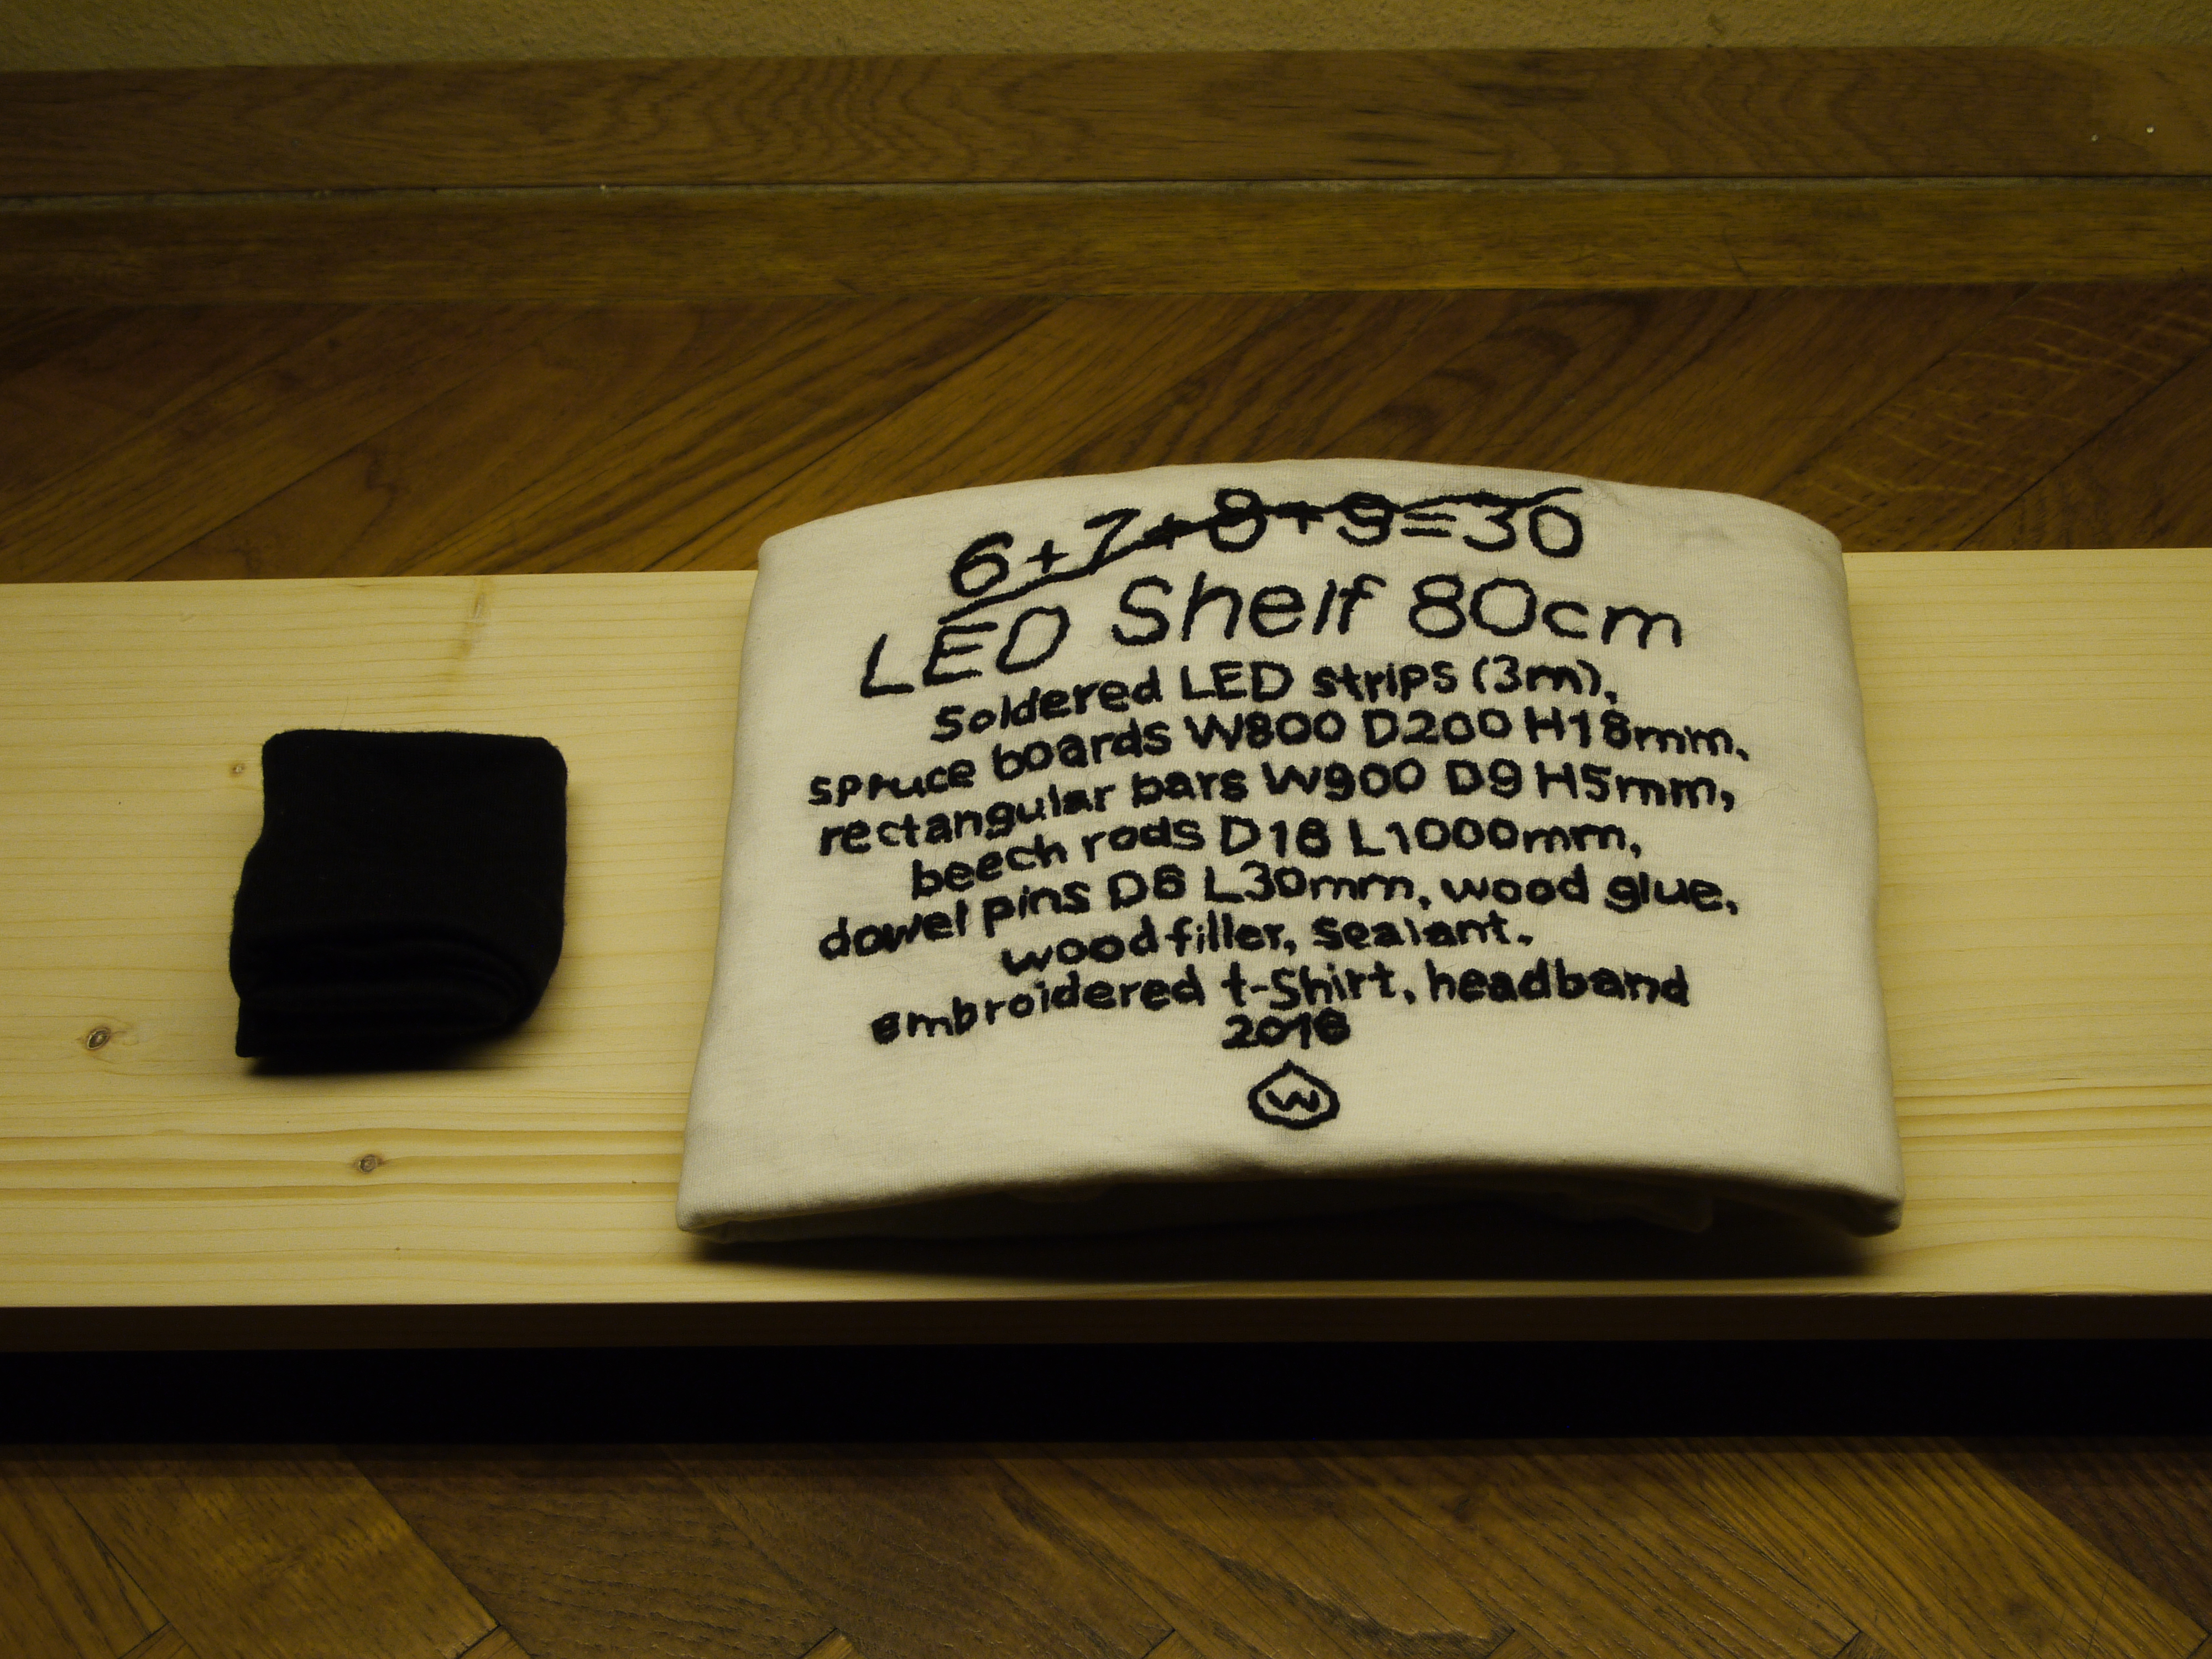 6+7+8+9=30
LED Shelf 80cm
Soldered LED strips (3m),
spruce boards W800 D200 H18mm,
rectangular bars W900 D9 H5mm,
beech rods D18 L1000mm,
dowel pins D6 L30mm, wood glue,
wood filler, Sealant.
embroidered t-Shirt, headband
2016
W